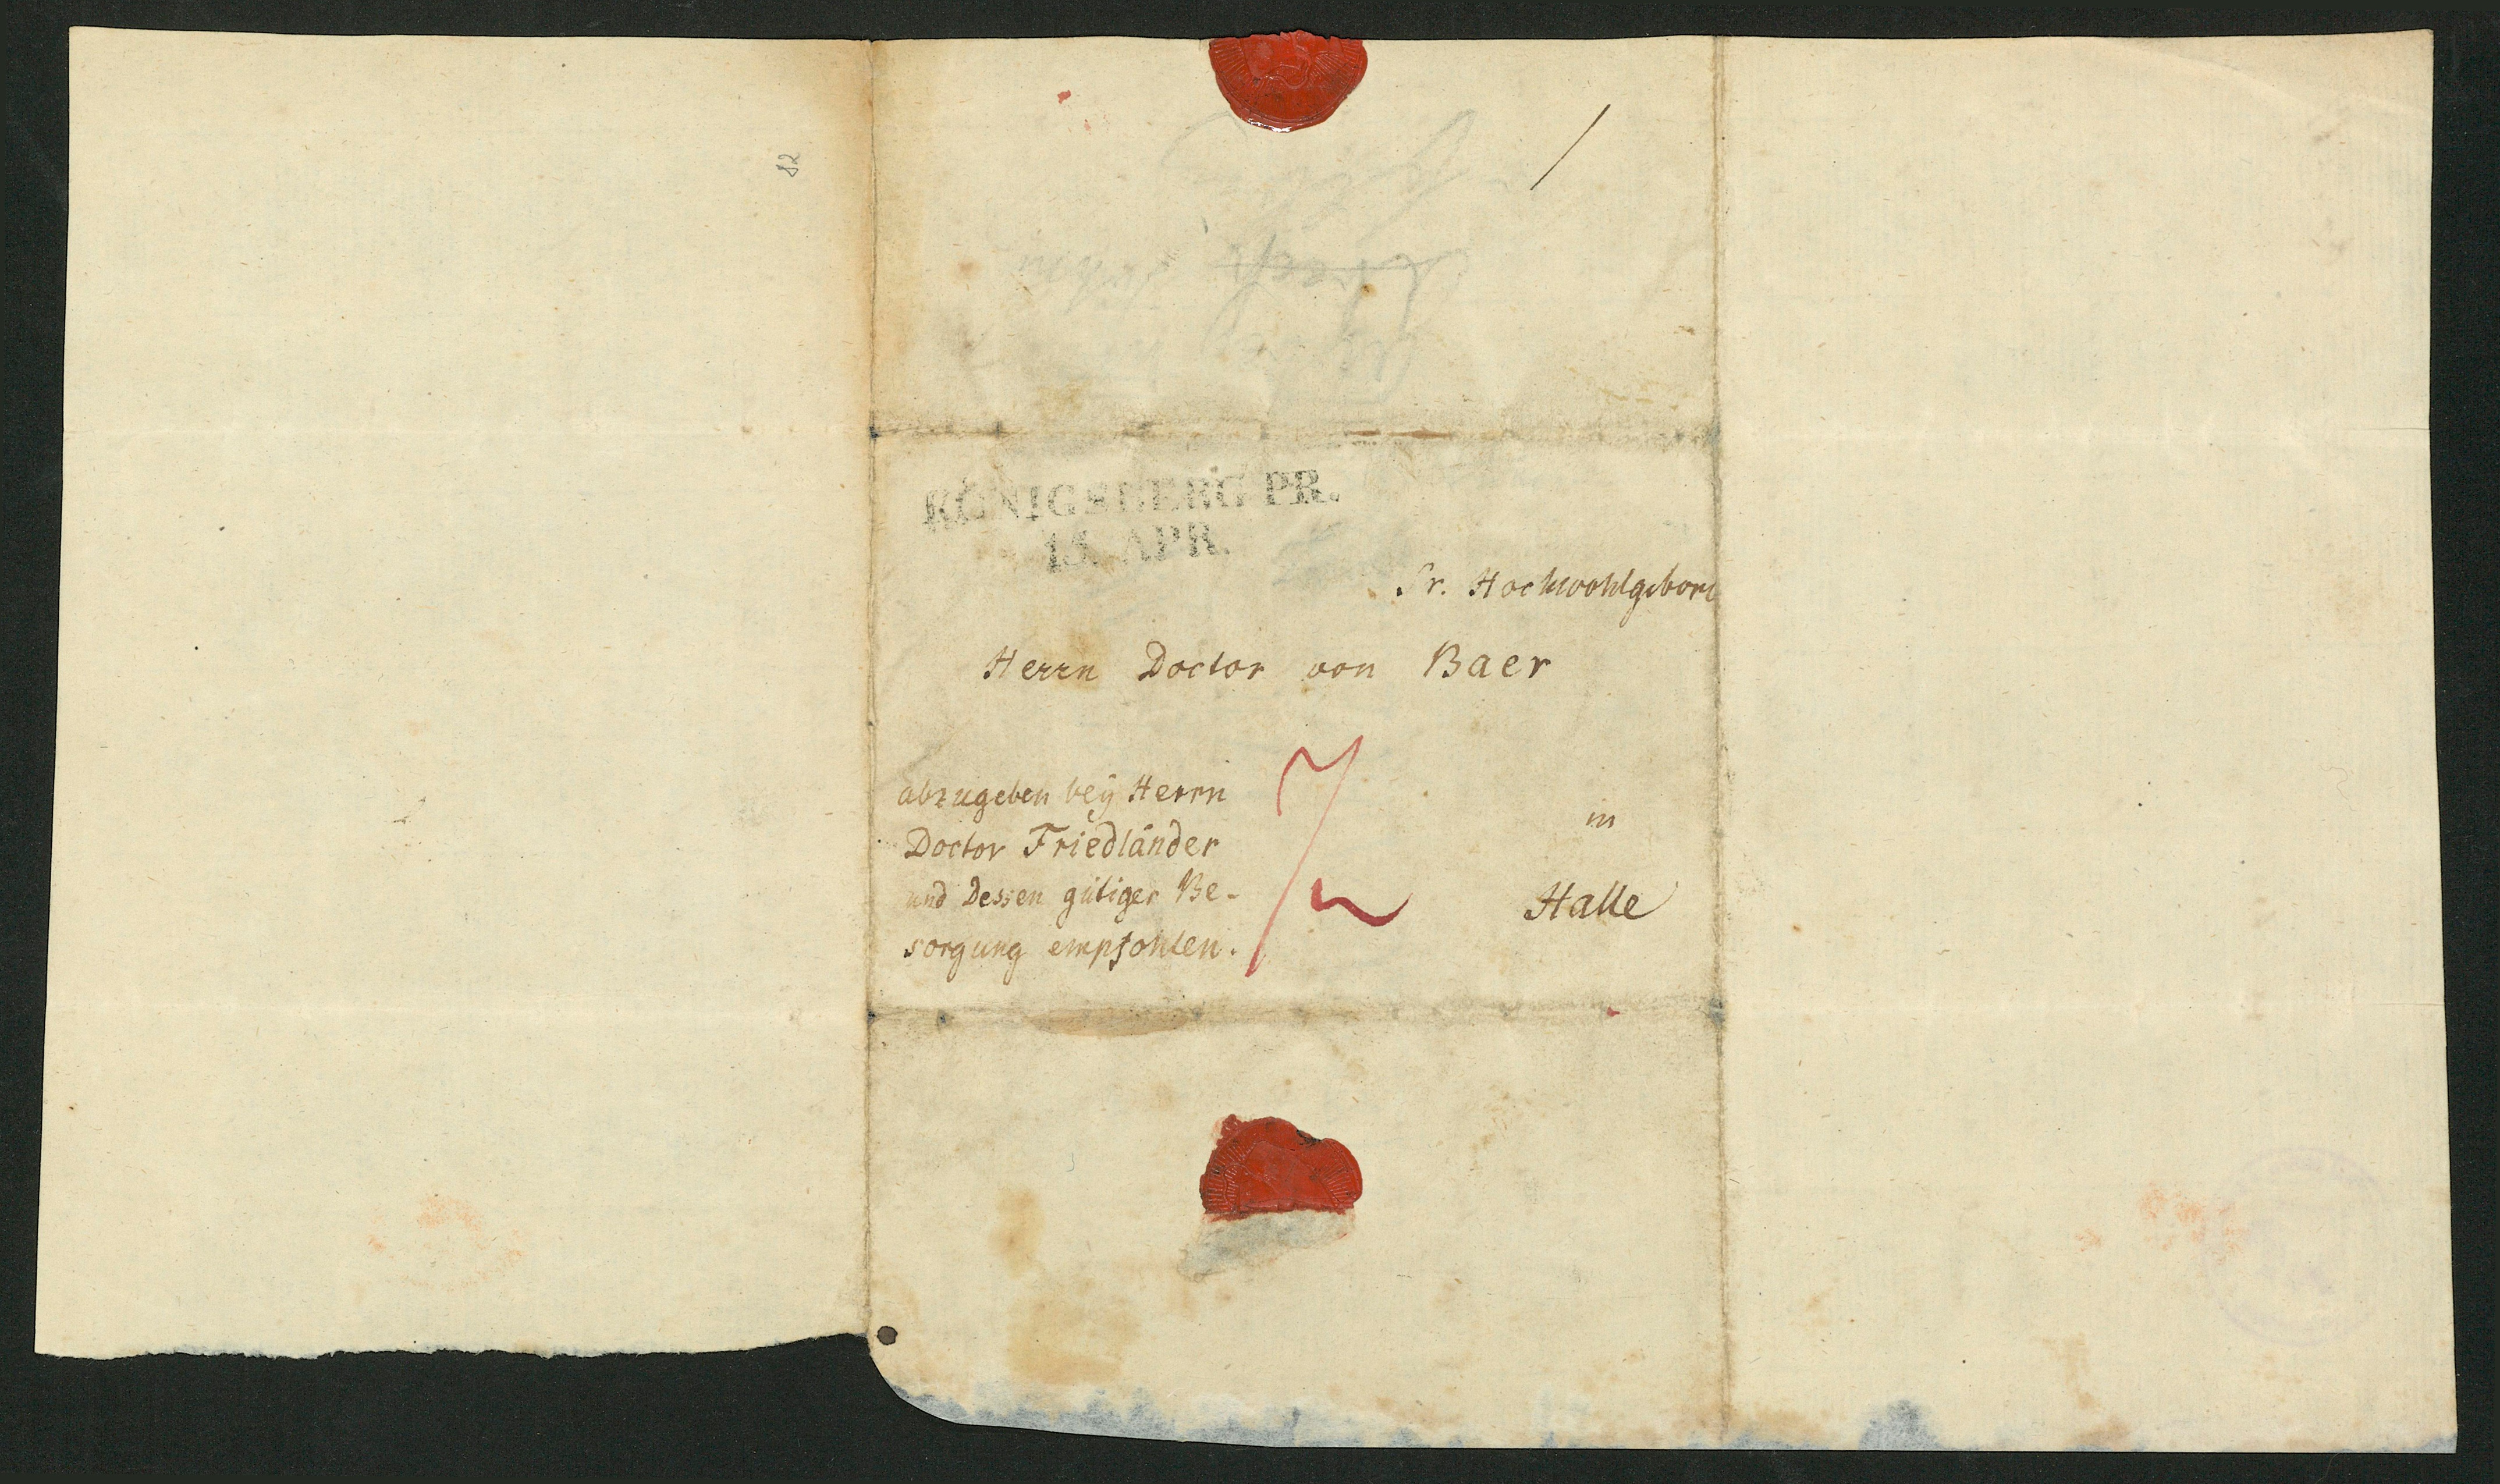 82
KÖNIGSBERG PR.
15. APR.
Sr. Hochwohlgebore
Herrn Doctor von Baer
abzugeben bey Herrn
Doctor Friedländer
und Dessen gütiger Be-
sorgung empfohlen.
in
Halle